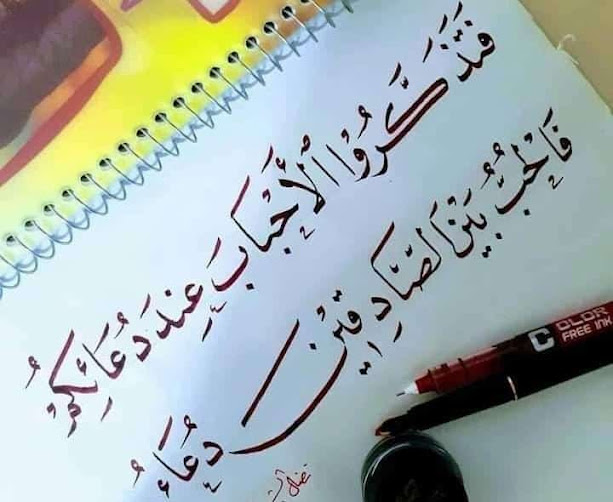 فَتَذَكَّرُوا الْأَحْبَابَ عِندَ دُعَائِكُمْ
فَالْحُبُّ بَيْنَ الصَّادِقِينَ دُعَاءُ
COLOR
FREE INK